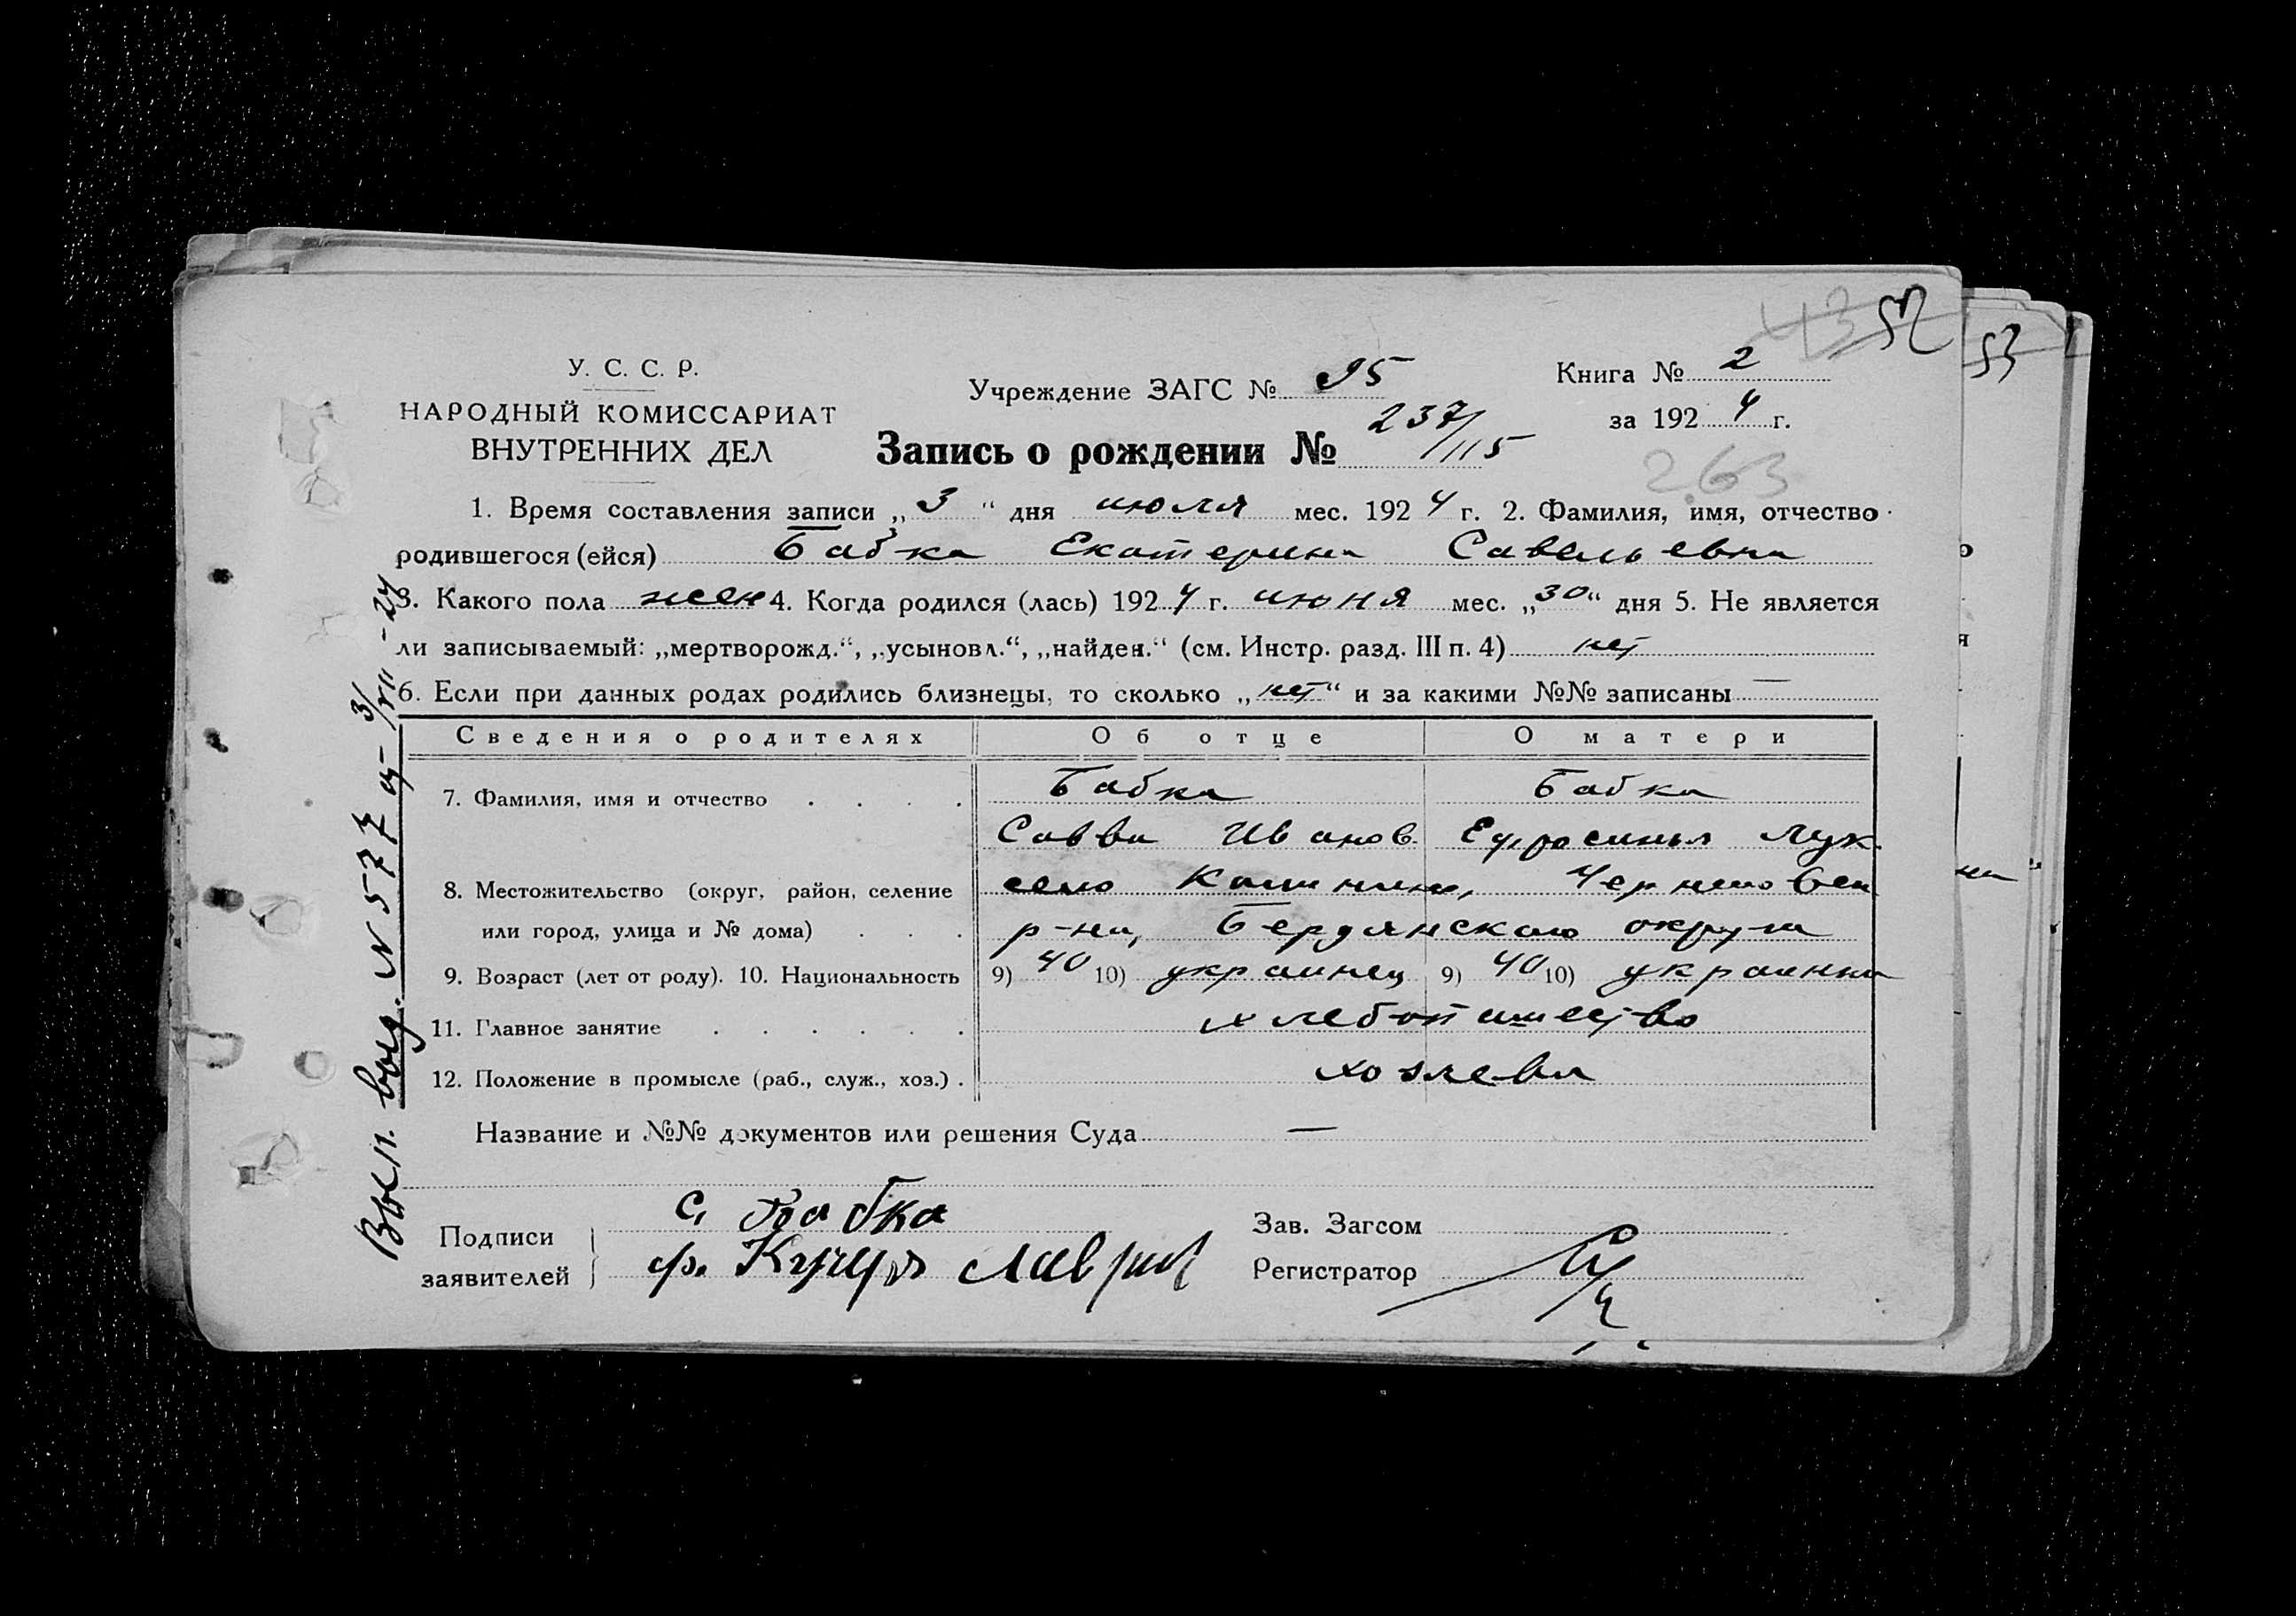 43 52
53
У. С. С. Р.
НАРОДНЫЙ КОМИССАРИАТ
ВНУТРЕННИХ ДЕЛ
Учреждение ЗАГС № 95
Книга № 2
за 1924 г.
Запись о рождении № 237/115
263
1. Время составления записи „3“ дня июля мес. 1924 г. 2. Фамилия, имя, отчество
родившегося (ейся) Бабка Екатерина Савельевна
3. Какого пола жен 4. Когда родился (лась) 1924 г. июня мес. „30“ дня 5. Не является
ли записываемый: „мертворожд.“, „усыновл.“, „найден.“ (см. Инстр. разд. III п. 4) нет
6. Если при данных родах родились близнецы, то сколько „нет“ и за какими №№ записаны —
Сведения о родителях Об отце О матери
7. Фамилия, имя и отчество . . . . Бабка Бабка
Савва Иванов. Ефросинья Лук.
8. Местожительство (округ, район, селение село
или город, улица и № дома) . . . р-на, Бердянского округа
9. Возраст (лет от роду). 10. Национальность 9) 40 10) украинец 9) 40 10) украинка
11. Главное занятие . . . . . . хлебопашество
12. Положение в промысле (раб., служ., хоз.) . хозяева
Название и №№ документов или решения Суда —
Подписи
заявителей
С. Бабка
Зав. Загсом
Регистратор
Вып. выд. N 577 от 3/VII - 24